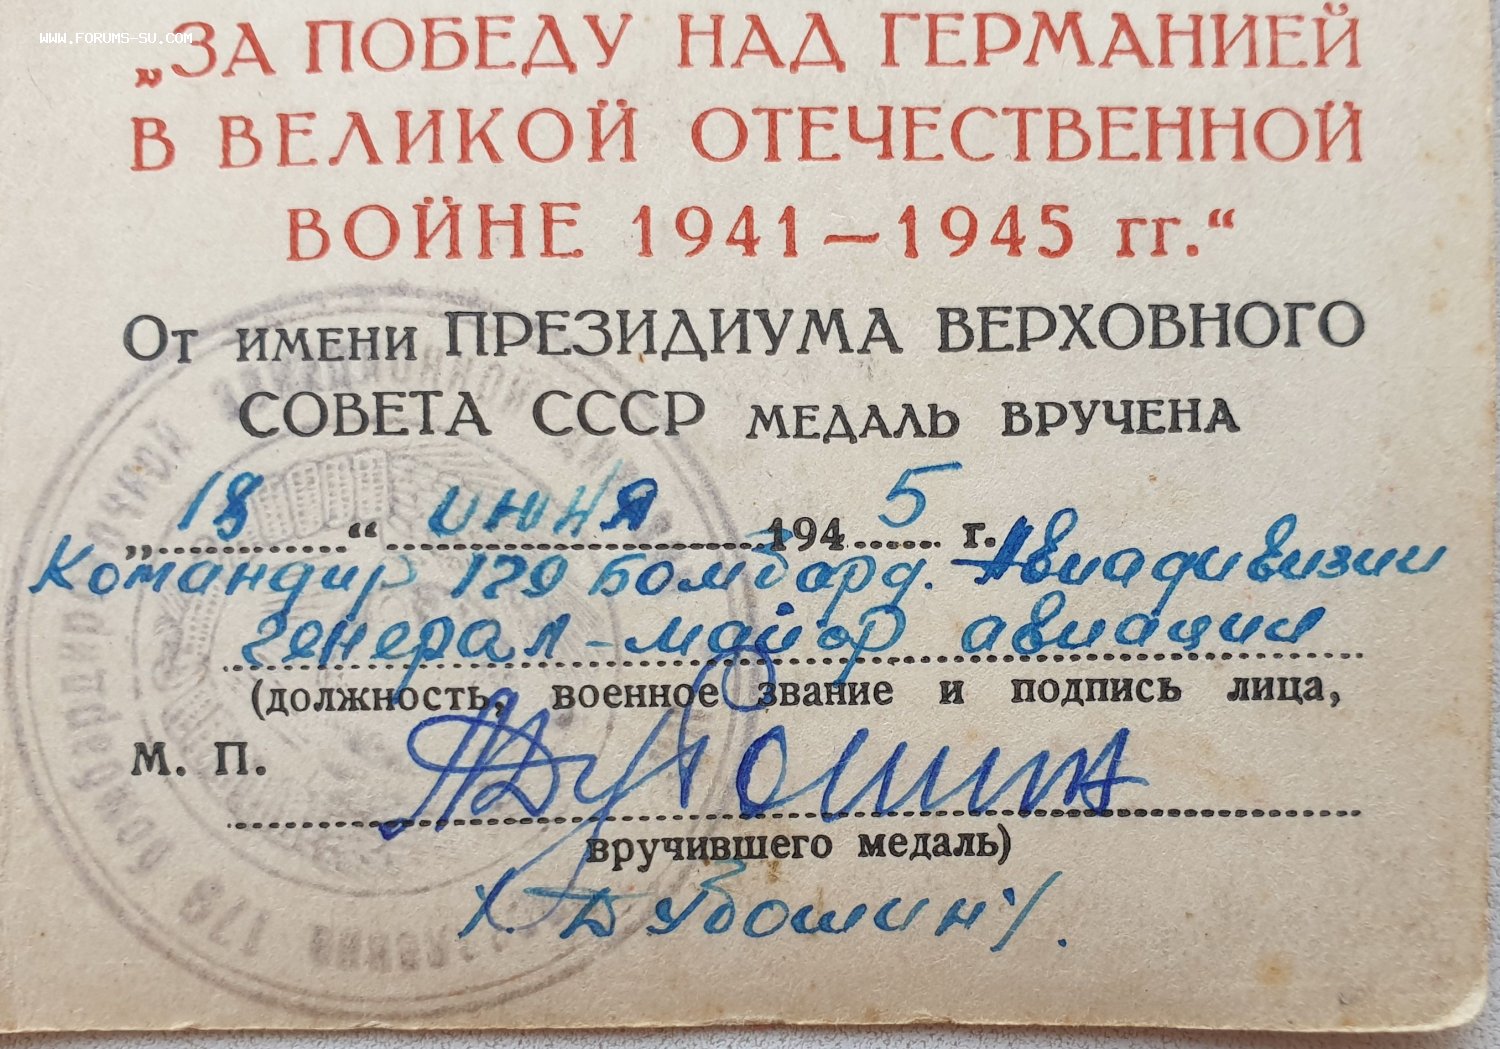 WWW.FORUMS-SU.COM
„ЗА ПОБЕДУ НАД ГЕРМАНИЕЙ
В ВЕЛИКОЙ ОТЕЧЕСТВЕННОЙ
ВОЙНЕ 1941—1945 гг.“
От имени ПРЕЗИДИУМА ВЕРХОВНОГО
СОВЕТА СССР МЕДАЛЬ ВРУЧЕНА
„18“ июня 1945 г.
Командир 179 Бомбард. Авиадивизии
генерал-майор авиации
(должность, военное звание и подпись лица,
М. П.
вручившего медаль)
/. Дубошин/.